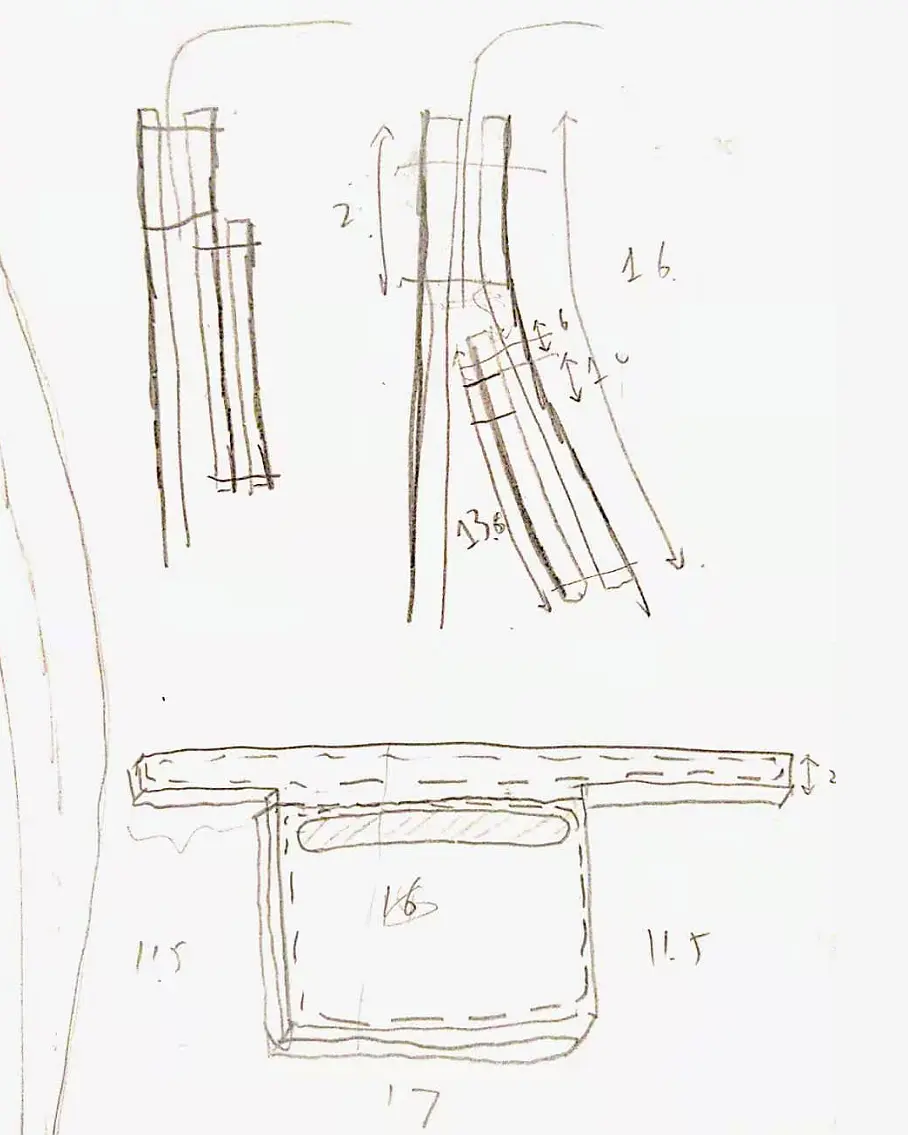 2
16
6
1
13.6
2
16
11.5
11.5
17